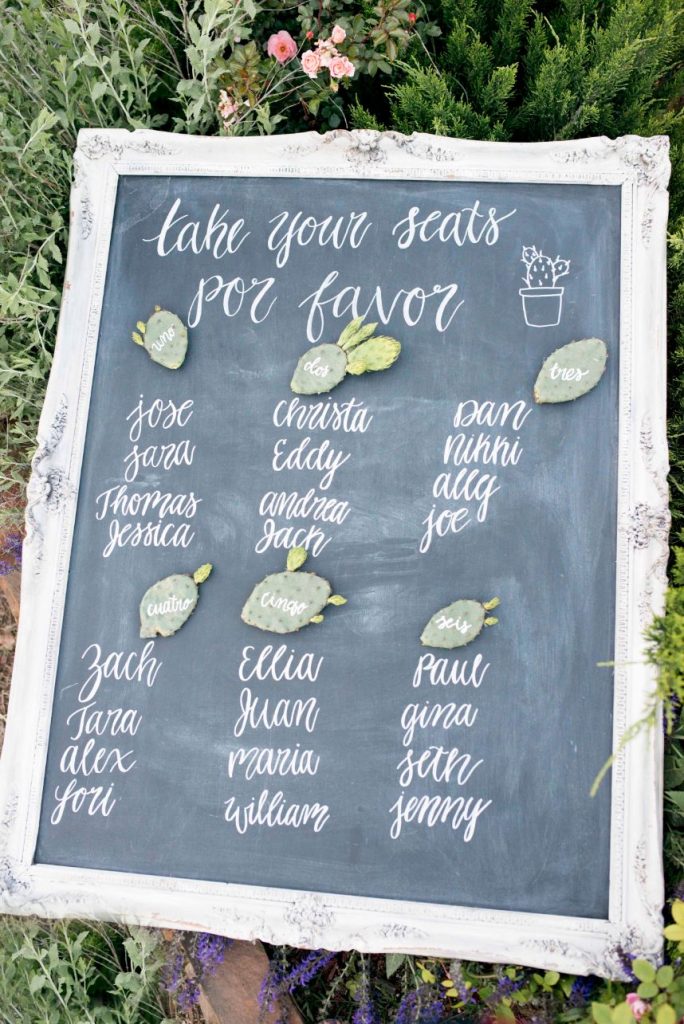 take your seats
por favor
uno
jose
sara
Thomas
Jessica
dos
Christa
Eddy
andrea
Jack
tres
Dan
Nikki
ally
joe
cuatro
Zach
Tara
alex
Lori
cinqo
Ellia
Juan
maria
William
seis
Paul
gina
seth
jenny